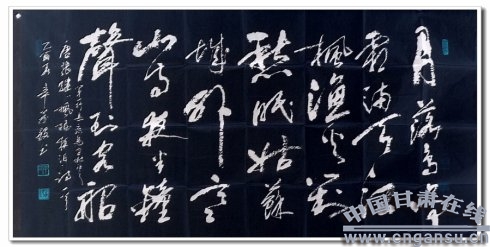 月落烏啼
霜滿天江
楓漁火對
愁眠姑蘇
城外寒
山寺夜半鐘
聲到客船
唐張繼楓橋夜泊詩一首
中国甘肃在线
www.cngansu.cn